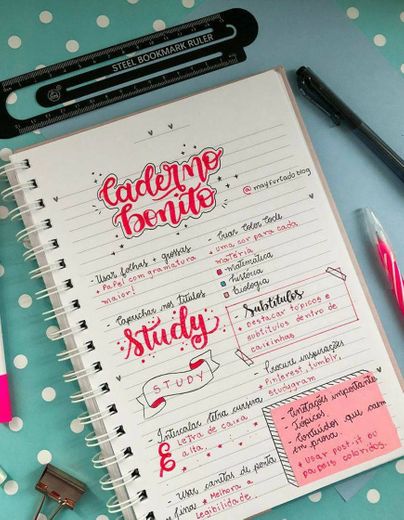 STEEL BOOKMARK RULER
Caderno
bonito
@mayfurtado.blog
- Usar folhas + grossas
* Papel com gramatura
maior!
- Criar Color Code
* Uma cor para cada
matéria
matemática
história
biologia
- Capuchar nos títulos
Study
STUDY
Subtítulos
* Destacar tópicos e
subtítulos dentro de
caixinhas
- Procure inspirações
* Pinterest, tumblr,
studygram
- Intercalar letra cursiva
E
Letra de caixa
alta.
- Anotações importantes
- Tópicos.
- Conteúdos que caem
em prova.
* Usar post.it ou
papéis coloridos.
- Usar canetas de ponta
fina! * Melhora a
legibilidade